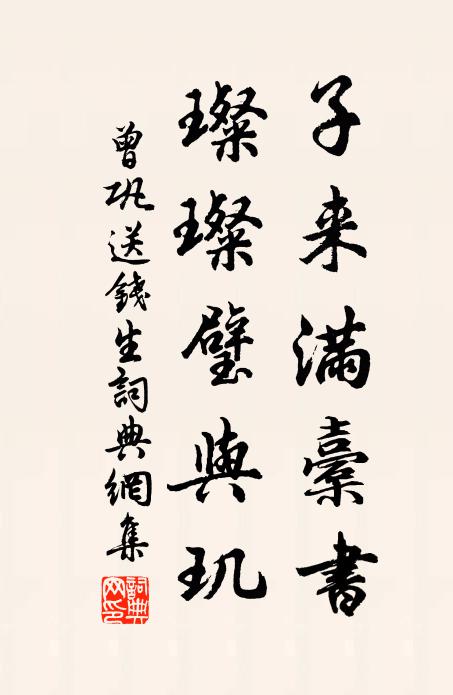 子来滿橐書
璨璨璧與玑
曾巩送錢生詞典網集
詞典网印